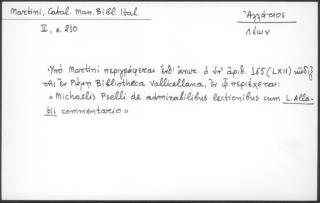 Martini, Catal. Man. Bibl. Ital.
II, σ. 210
Ἀλλάτιος
Λέων
Ὑπὸ Martini περιγράφεται ὁ ὑπ' ἀριθ. 165 (LXII) κῶδιξ
τῆς ἐν Ρώμῃ Bibliotheca Vallicellana, ἐν ᾧ περιέχεται:
« Michaelis Pselli de admirabilibus lectionibus cum L. Alla-
tii commentario »